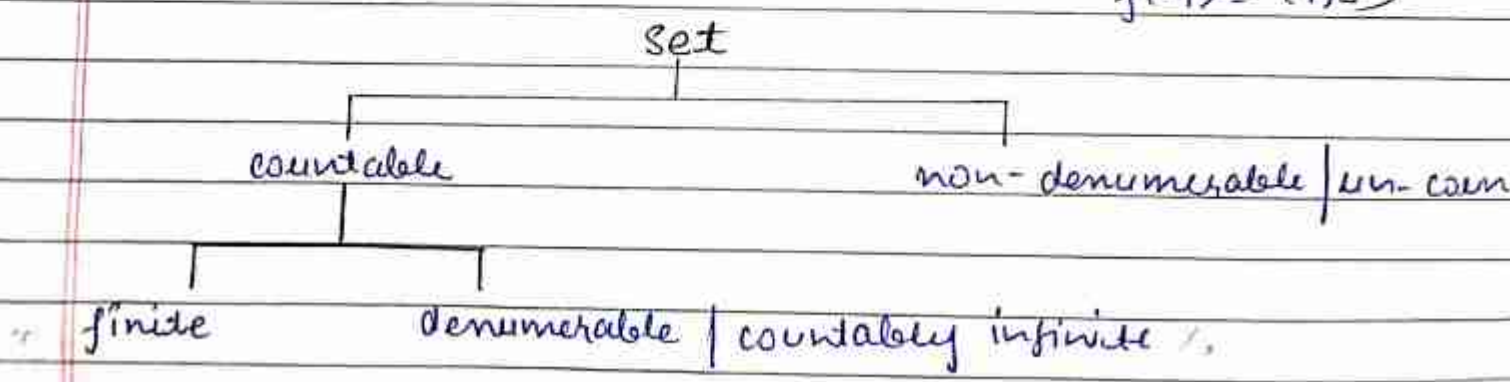 set
countable non-denumerable | un-coun
finite denumerable | countably infinite